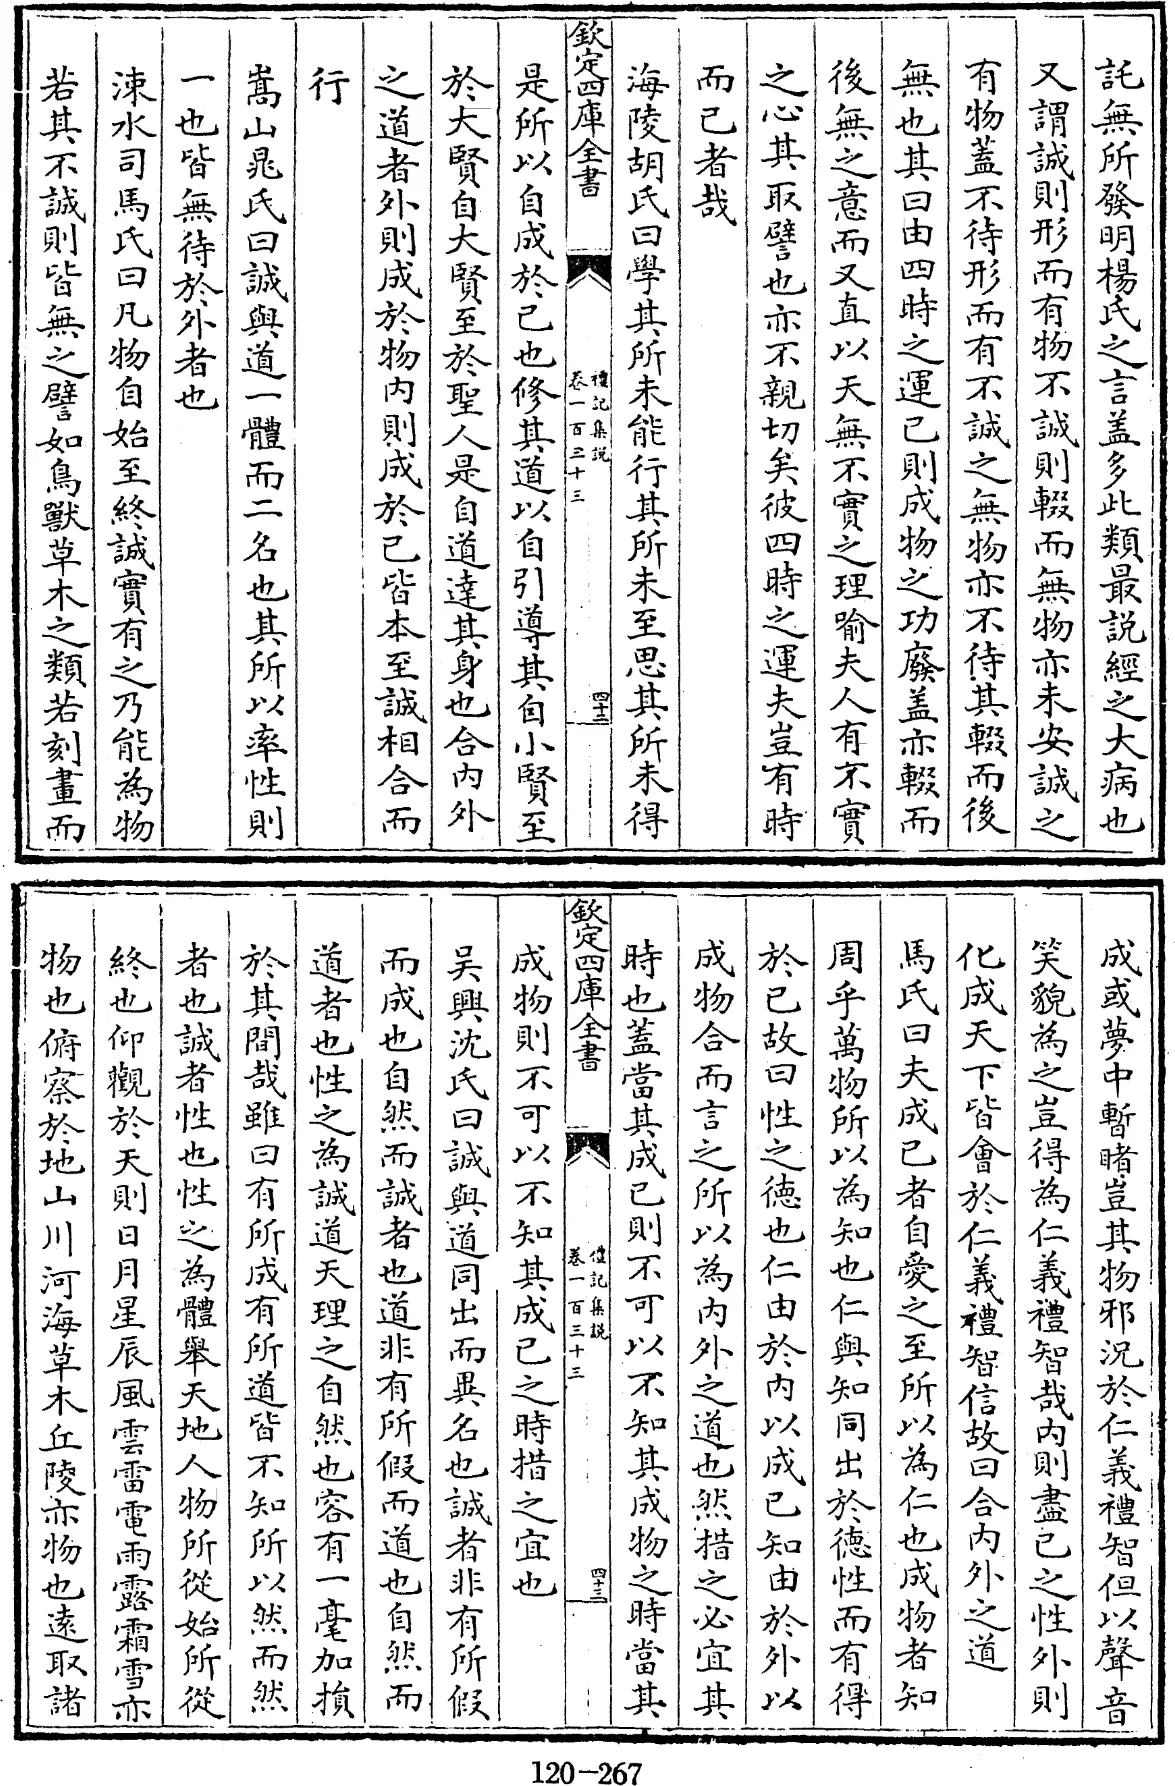 託無所發明楊氏之言盖多此類最説經之大病也
又謂誠則形而有物不誠則輟而無物亦未安誠之
有物蓋不待形而有不誠之無物亦不待其輟而後
無也其曰由四時之運已則成物之功廢盖亦輟而
後無之意而又直以天無不實之理喻夫人有不實
之心其取譬也亦不親切矣彼四時之運夫豈有時
而已者哉
海陵胡氏曰學其所未能行其所未至思其所未得
欽定四庫全書
禮記集説
卷一百三十三
四十二
是所以自成於己也修其道以自引導其自小賢至
於大賢自大賢至於聖人是自道達其身也合内外
之道者外則成於物内則成於己皆本至誠相合而
行
嵩山晁氏曰誠與道一體而二名也其所以率性則
一也皆無待於外者也
涑水司馬氏曰凡物自始至終誠實有之乃能為物
若其不誠則皆無之譬如鳥獸草木之類若刻畫而
成或夢中暫睹豈其物邪況於仁義禮智但以聲音
笑貌為之豈得為仁義禮智哉内則盡己之性外則
化成天下皆會於仁義禮智信故曰合内外之道
馬氏曰夫成己者自愛之至所以為仁也成物者知
周乎萬物所以為知也仁與知同出於徳性而有得
於已故曰性之徳也仁由於内以成己知由於外以
成物合而言之所以為内外之道也然措之必宜其
時也蓋當其成己則不可以不知其成物之時當其
欽定四庫全書
禮記集説
卷一百三十三
四十三
成物則不可以不知其成己之時措之宜也
吴興沈氏曰誠與道同出而異名也誠者非有所假
而成也自然而誠者也道非有所假而道也自然而
道者也性之為誠道天理之自然也容有一毫加損
於其間哉雖曰有所成有所道皆不知所以然而然
者也誠者性也性之為體舉天地人物所從始所從
終也仰觀於天則日月星辰風雲雷電雨露霜雪亦
物也俯察於地山川河海草木丘陵亦物也遠取諸
120-267